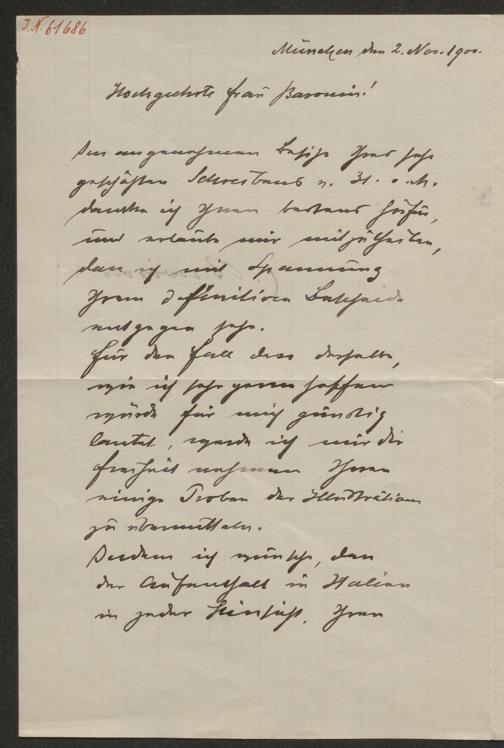 I.N. 61686
München den 2. Nov. 1900.
Hochgeehrte Frau Baronin!
Im angenehmen Besitze Ihres sehr
geschätzten Schreibens v. 31. v. M.
danke ich Ihnen bestens hiefür,
und erlaube mir mitzutheilen,
dass ich mit Spannung
Ihrem definitiven Bescheide
entgegen sehe.
Für den Fall dass derselbe,
wie ich sehr gerne hoffen
würde für mich günstig
lautet, werde ich mir die
Freiheit nehmen Ihnen
einige Proben der Illustration
zu übermitteln.
Indem ich wünsche, dass
der Aufenthalt in Italien
in jeder Hinsicht, Ihren